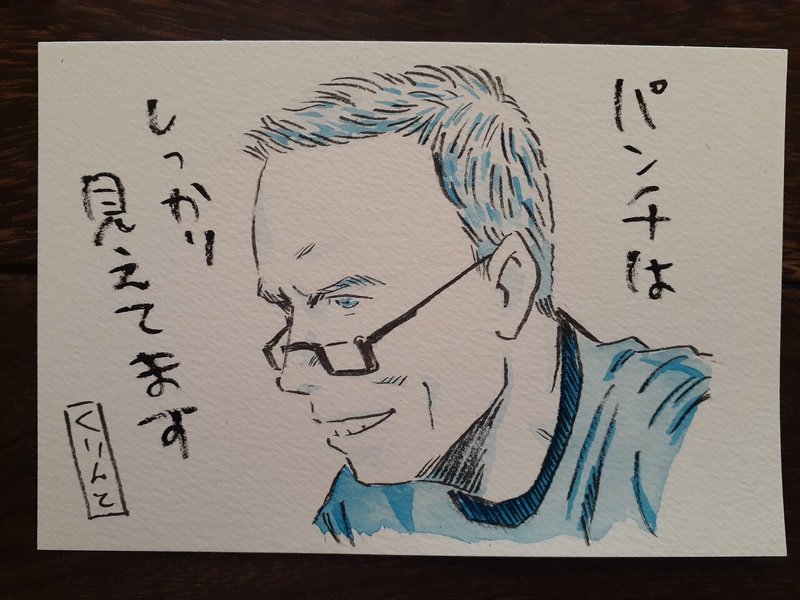 パンチは
しっかり
見えてます
くりんと